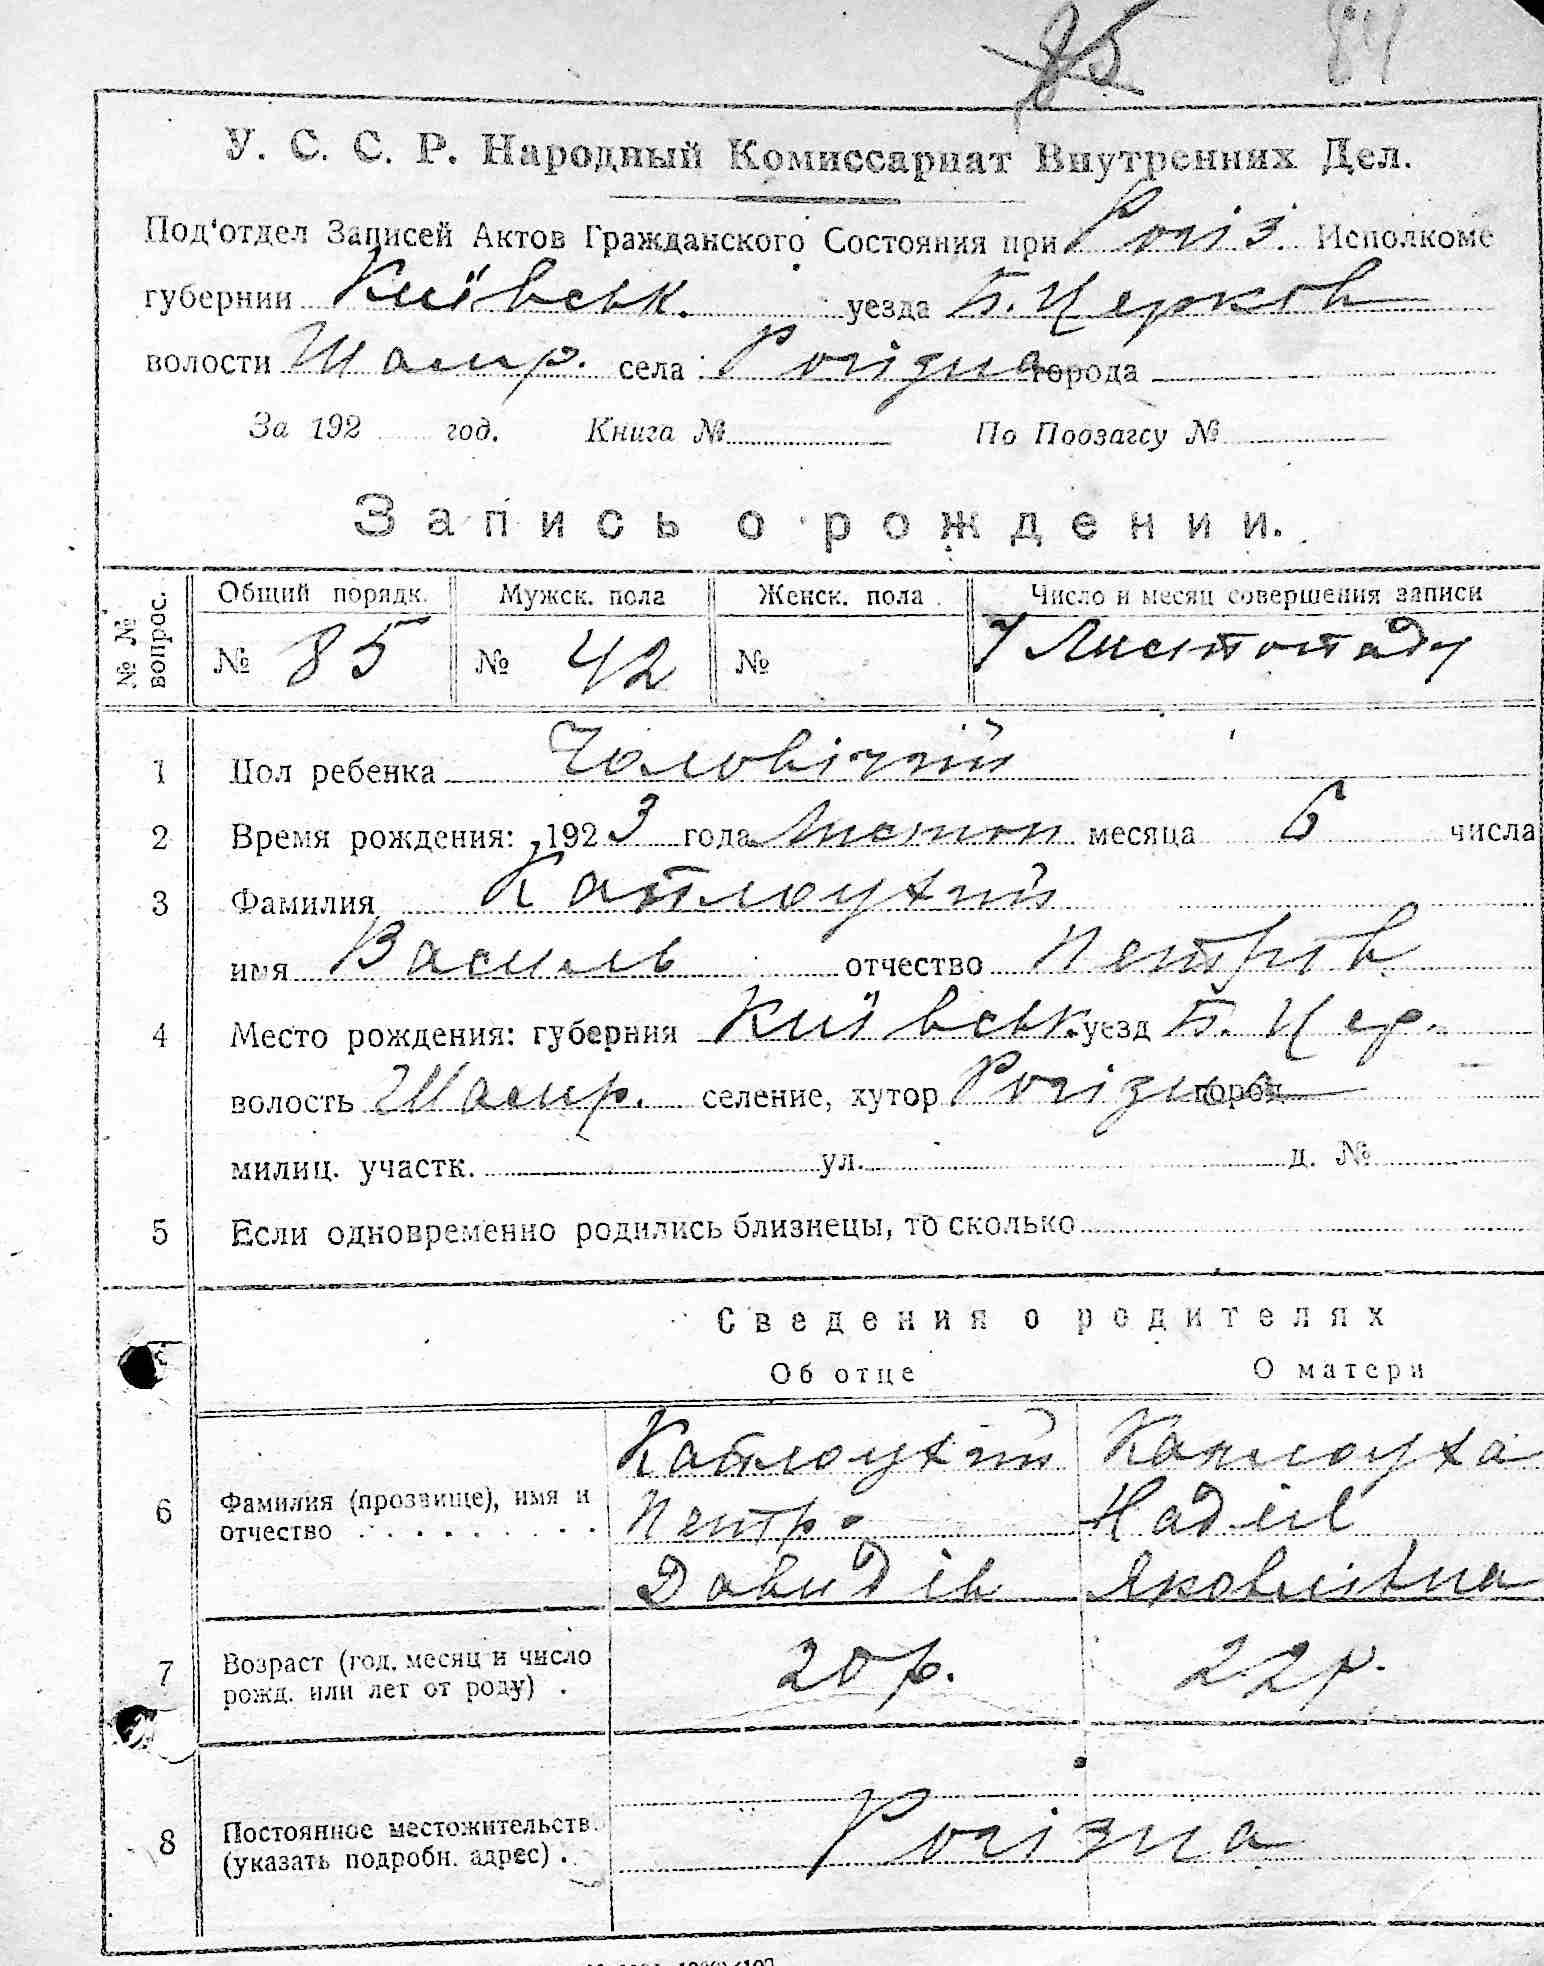 85 84
У. С. С. Р. Народный Комиссариат Внутренних Дел.
Под'отдел Записей Актов Гражданского Состояния при Рогіз. Исполкоме
губернии Київськ. уезда Б. Церков
волости Шамр. села Рогізна города
За 192 год. Книга № По Подзагсу №
Запись о рождении.
№ № вопрос. Общий порядк. Мужск. пола Женск. пола Число и месяц совершения записи
№ 85 № 42 № 7 Листопаду
1 Пол ребенка Чоловічий
2 Время рождения: 1923 года Листоп месяца 6 числа
3 Фамилия Каплоухий
имя Василь отчество Петрів
4 Место рождения: губерния Київськ. уезд Б. Цер.
волость Шамр. селение, хутор Рогізна город
милиц. участк. ул. д. №
5 Если одновременно родились близнецы, то сколько
Сведения о родителях
Об отце О матери
6 Фамилия (прозвище), имя и отчество Каплоухий Каплоуха
Петро
Давидів Яковлівна
7 Возраст (год, месяц и число рожд. или лет от роду) . 20 р. 22 р.
8 Постоянное местожительств. (указать подробн. адрес) . Рогізна